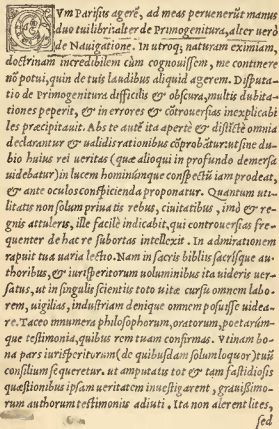 CVm Parisiis agerē, ad meas peruenerūt manus
duo tui libri: alter de Primogenitura, alter verò
de Nauigatione. In vtroq; naturam eximiam,
doctrinam incredibilem cùm cognouissem, me continere
nō potui, quin de tuis laudibus aliquid agerem. Disputa-
tio de Primogenitura difficilis & obscura, multis dubita-
tiones peperit, & in errores & cōtrouersias inexplicabi
les præcipitauit. Abs te autē ita apertè & distictè omnia
declarantur & validis rationibus cōprobātur: vt sine du-
bio huius rei veritas (quæ alioqui in profundo demersa
videbatur) in lucem hominúmque conspectū iam prodeat,
& ante oculos conspicienda proponatur. Quantum vti-
litatis non solùm priuatis rebus, ciuitatibus, imò & re-
gnis attuleris, ille facilè indicabit, qui controuersias fre-
quenter de hac re subortas intellexit. In admirationem
rapuit tua varia lectio. Nam in sacris bibliis sacrísque au
thoribus, & iurisperitorum voluminibus ita videris ver-
satus, vt in singulis scientiis toto vitæ cursu omnem labo-
rem, vigilias, industriam denique omnem posuisse videa-
re. Taceo innumera philosophorum, oratorum, poetarúm-
que testimonia, quibus rem tuam confirmas. Vtinam bo-
na pars iurisperitorum (de quibusdam solum loquor) tuū
consilium sequeretur. vt amputatis tot & tam fastidiosis
quæstionibus ipsam veritatem inuestigarent, grauissimo-
rum authorum testimoniis adiuti. Ita non alerent lites,
sed